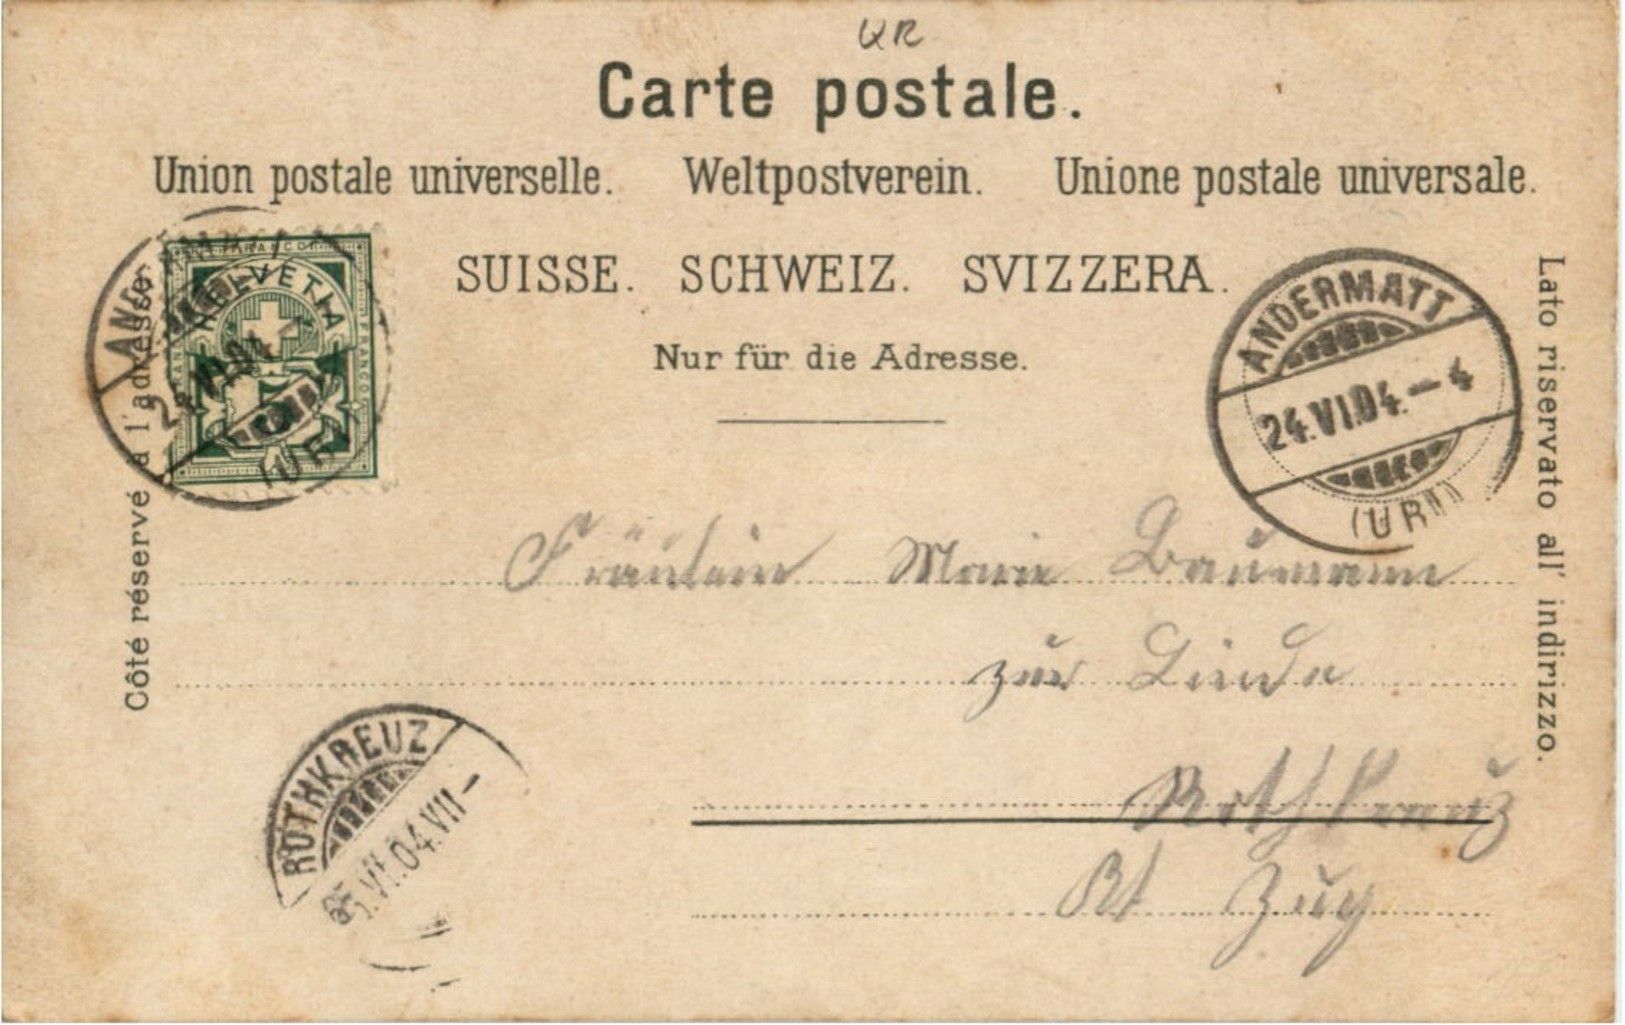 UR
Carte postale.
Union postale universelle. Weltpostverein. Unione postale universale.
SUISSE. SCHWEIZ. SVIZZERA.
Nur für die Adresse.
Côté réservé à l'adresse.
FRANCO
HELVETIA
24.VI.04
(UR
ANDERMATT
24.VI.04.-4
(URI)
Lato riservato all' indirizzo.
Fräulein Marie Baumann
zur Linde
Rothkreuz
Kt Zug
ROTHKREUZ
25.VI.04.VII-